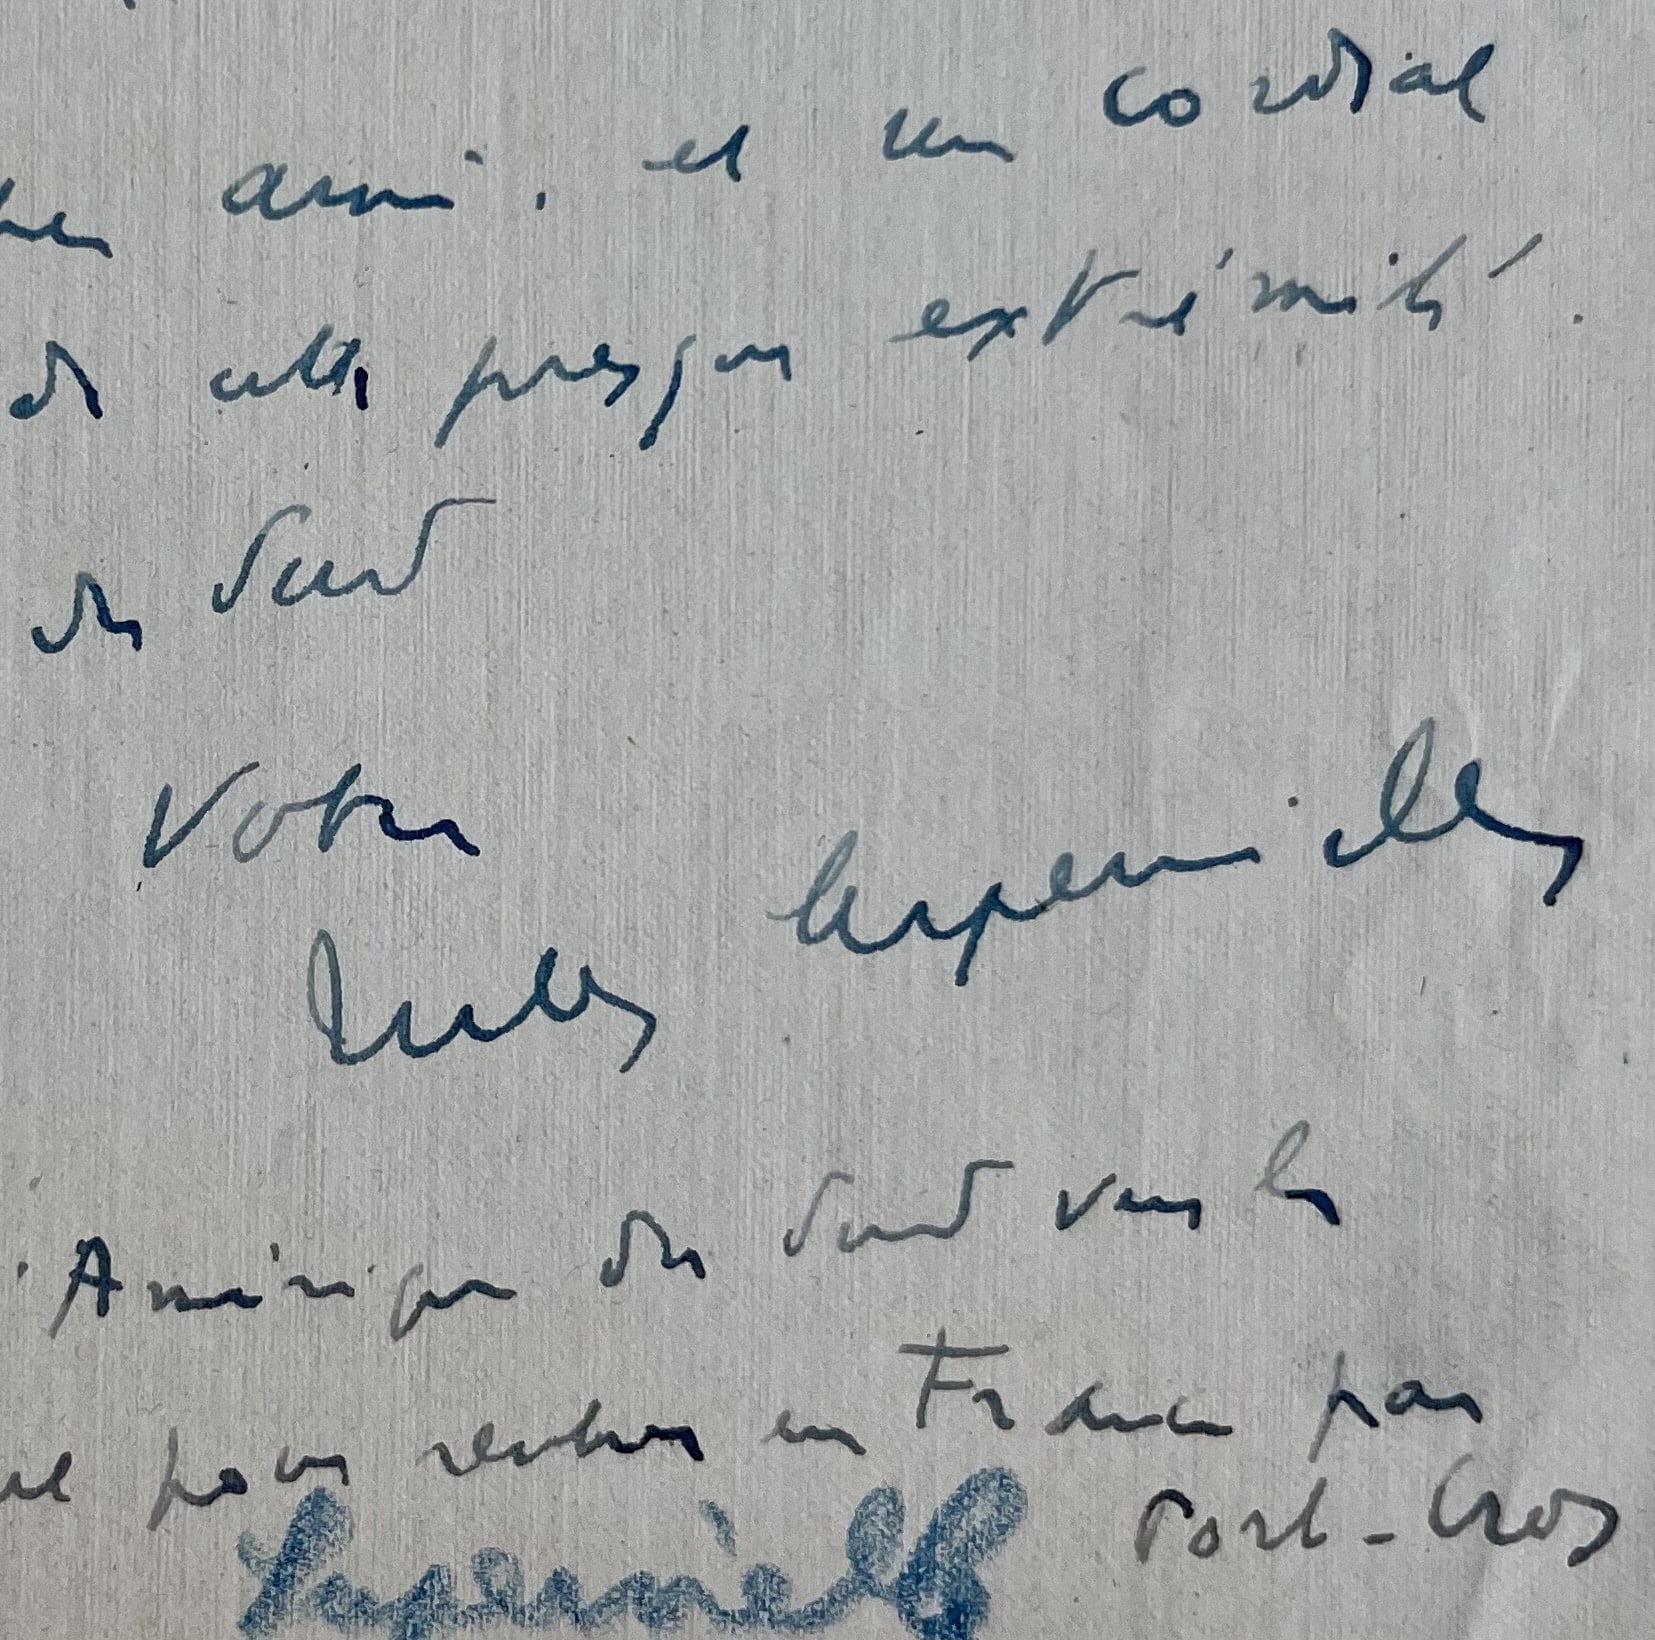 ami. et un cordial
de cette presque extrémité
du Sud
Votre
Jules Supervielle
Amérique du Sud vers le
pour rentrer en France par
Port-Cros
Supervielle